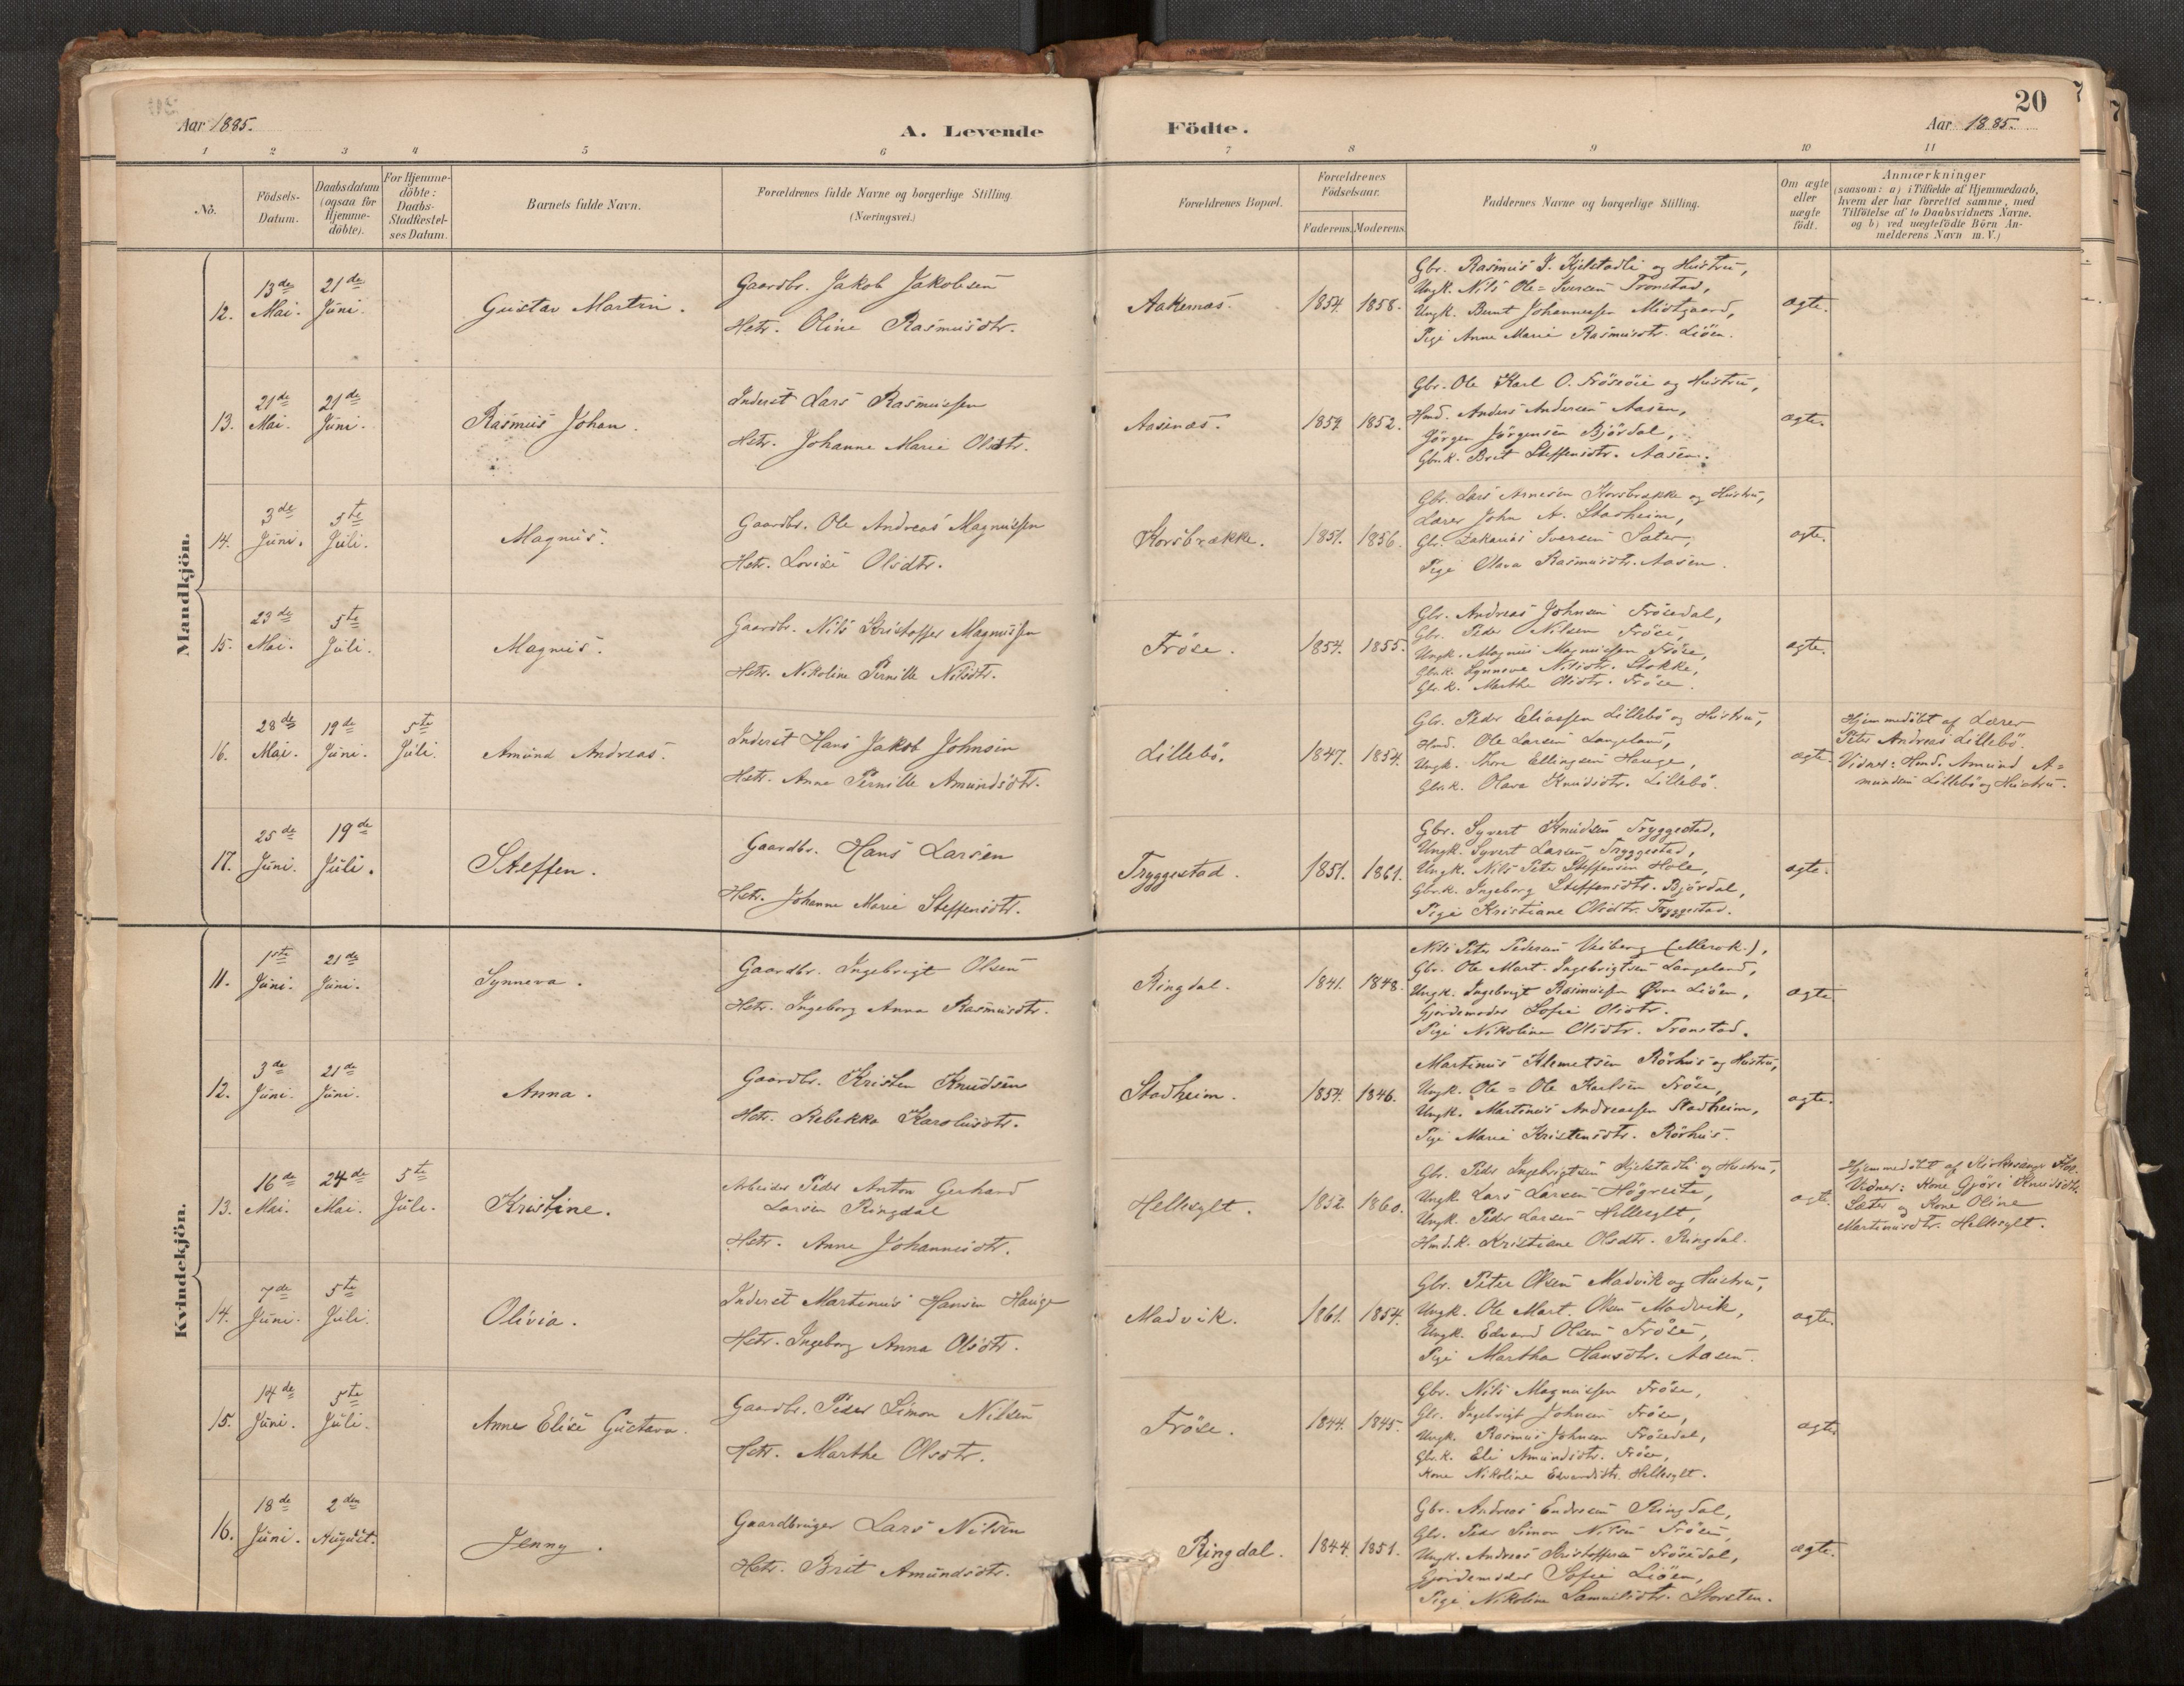 Aar 1885.
A. Levende
Födte.
Aar 1885.
20
1 2 3 4 5 6 7 8 9 10 11
No.
Födsels-
Datum.
Daabsdatum
(ogsaa for
Hjemme-
döbte).
For Hjemme-
döbte:
Daabs-
Stadfæstel-
ses Datum.
Barnets fulde Navn.
Forældrenes fulde Navne og borgerlige Stilling.
(Næringsvei.)
Forældrenes Bopæl.
Forældrenes
Födselsaar.
Faderens. Moderens.
Faddernes Navne og borgerlige Stilling.
Om ægte
eller
uægte
födt.
Anmærkninger
(saasom: a) i Tilfælde af Hjemmedaab,
hvem der har forrettet samme, med
Tilföielse af to Daabsvidners Navne.
og b) ved uægtefödte Börn An-
melderens Navn m. V.)
Mandkjön.
12.
13de
Mai.
21de
Juni.
Gustav Martin.
Gaardbr. Jakob Jakobsen
Hstr. Oline Rasmusdtr.
Aakernæs.
1854. 1858.
Gbr. Rasmus J. Kjelstadli og Hustru,
Ungk. Nils Ole=Iversen Tronstad,
Ungk. Bernt Johannessen Midtgaard,
Pige Anne Marie Rasmusdtr. Liöen.
ægte.
13.
21de
Mai.
21de
Juni.
Rasmus Johan.
Inderst Lars Rasmussen
Hstr. Johanne Marie Olsdtr.
Aasenæs.
1859 1852.
Gbr. Ole Karl O. Fröseöie og Hustru,
Hmd. Anders Andersen Aasen,
Jörgen Jörgensen Björdal,
Gbr.k. Brit Steffensdtr. Aasen.
ægte.
14.
3de
Juni.
5te
Juli.
Magnus.
Gaardbr. Ole Andreas Magnussen
Hstr. Lovise Olsdtr.
Korsbrække.
1851. 1856.
Gbr. Lars Arnesen Korsbrække og Hustru,
Lærer John A. Stadheim,
Gbr. Zakarias Iversen Sæter,
Pige Olava Rasmusdtr. Aasen.
ægte.
15.
23de
Mai.
5te
Juli.
Magnus.
Gaardbr. Nils Kristoffer Magnussen
Hstr. Nikoline Pernille Nilsdtr.
Fröse.
1854. 1855.
Gbr. Andreas Johnsen Frösedal,
Gbr. Peder Nilsen Fröse,
Ungk. Magnus Magnussen Fröse,
Gbr.k. Synneva Nilsdtr. Stokke,
Gbr.k. Marthe Olsdtr. Fröse.
ægte.
16.
28de
Mai.
19de
Juni.
5te
Juli.
Amund Andreas.
Inderst Hans Jakob Johnsen
Hstr. Anne Pernille Amundsdtr.
Lillebö.
1847. 1854.
Gbr. Peder Eliassen Lillebö og Hustru,
Hmd. Ole Larsen Langeland,
Ungk. Thore Ellingsen Hauge,
Gbr.k. Olava Knudsdtr. Lillebö.
ægte.
Hjemmedöbt af Lærer
Peter Andreas Lillebö.
Vidner: Hmd. Amund A=
mundsen Lillebö og Hustru.
17.
25de
Juni.
19de
Juli.
Steffen.
Gaardbr. Hans Larsen
Hstr. Johanne Marie Steffensdtr.
Tryggestad.
1851. 1861.
Gbr. Syvert Knudsen Tryggestad,
Ungk. Syvert Larsen Tryggestad,
Ungk. Nils Peter Steffensen Hole,
Gbr.k. Ingeborg Steffensdtr. Björdal,
Pige Kristiane Olsdtr. Tryggestad.
ægte.
Kvindekjön.
11.
1ste
Juni.
21de
Juni.
Synneva.
Gaardbr. Ingebrigt Olsen
Hstr. Ingeborg Anna Rasmusdtr.
Ringdal.
1841. 1848.
Nils Peter Pedersen Veiberg (Merok.),
Gbr. Ole Mart. Ingebrigtsen Langeland,
Ungk. Ingebrigt Rasmussen Övre Liöen,
Gjordemoder Sofie Olsdtr.
Pige Nikoline Olsdtr. Tronstad.
ægte
12.
3de
Juni.
21de
Juni.
Anna.
Gaardbr. Kristen Knudsen
Hstr. Rebekka Karolusdtr.
Stadheim.
1854. 1846.
Martinus Klemetsen Rörhus og Hustru,
Ungk. Ole=Ole Karlsen Fröse,
Ungk. Martinus Andreassen Stadheim,
Pige Marie Kristensdtr. Rörhus.
ægte.
13.
16de
Mai.
24de
Mai.
5te
Juli.
Kristine.
Arbeider Peder Anton Gerhard
Larsen Ringdal
Hstr. Anne Johannesdtr.
Hellesylt.
1852. 1860.
Gbr. Peder Ingebrigtsen Kjelstadli og Hustru,
Ungk. Lars Larsen Högreite,
Ungk. Peder Larsen Hellesylt,
Hmd.k. Kristiane Olsdtr. Ringdal.
ægte.
Hjemmedöbt af Kirkesanger
Vidner: Kone Gjöri Knudsdtr.
Sæter og Kone Oline
Martinusdtr. Hellesylt.
14.
7de
Juni.
5te
Juli.
Olivia.
Inderst Martinus Hansen Hauge
Hstr. Ingeborg Anna Olsdtr.
Madvik.
1861. 1854.
Gbr. Peter Olsen Madvik og Hustru,
Ungk. Ole Mart. Olsen Madvik,
Ungk. Edvard Olsen Fröse,
Pige Martha Hansdtr. Aasen.
ægte.
15.
14de
Juni.
5te
Juli.
Anne Elise Gustava.
Gaardbr. Peder Simon Nilsen
Hstr. Marthe Olsdtr.
Fröse.
1844. 1845.
Gbr. Nils Magnussen Fröse,
Gbr. Ingebrigt Johnsen Fröse,
Ungk. Rasmus Johnsen Frösedal,
Gbr.k. Eli Amundsdtr. Fröse,
Kone Nikoline Edvardsdtr. Hellesylt.
ægte
16.
18de
Juni.
2den
August.
Jenny.
Gaardbruger Lars Nilsen
Hstr. Brit Amundsdtr.
Ringdal.
1844. 1851.
Gbr. Andreas Endresen Ringdal,
Gbr. Peder Simon Nilsen Fröse,
Ungk. Andreas Kristoffersen Frösedal,
Gjordemoder Sofie Liöen,
Pige Nikoline Samuelsdtr. Storsten.
ægte.